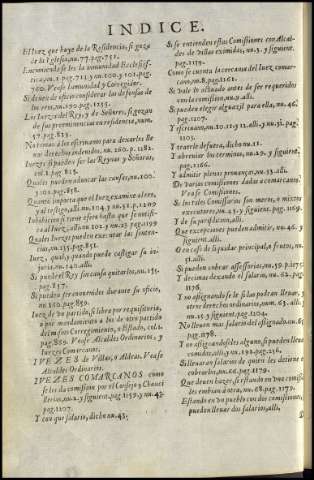 INDICE.
El Iuez que huye de la Residencia, si goza
de la Iglesia, nu. 77. pag. 751.
Encomiendasele la inmunidad Ecclesiastica,
nu. 2. pag. 713. y nu. 100. y 101. pag.
760. Vease Inmunidad y Corregidor.
Si deue de oficio considerar las defensas de
los reos, nu. 190. pag. 1233.
Los Iuezes del Rey, y de Señores, si gozan
de sus preeminencias en residencia, num.
57. alli.
No toman a los escriuanos para dexarlos llenar
derechos deuidos, nu. 260. p. 1282.
Iuezes si pueden ser las Reynas y Señoras,
col. 2. pag. 815.
Quales pueden abreuiar las causas, nu. 100.
y 102. pag. 838.
Quanto importa que el Iuez examine al reo,
y al testigo, alli, nu. 104. y nu. 52. p. 1209
Inhibicion si tiene efeto hasta que se notifica
al Iuez, alli nu. 102. y nu. 23. pag. 1199
Quales Iuezes pueden executar las sentencias,
nu. 135. pag. 851.
Iuez, qual, y quando puede castigar su injuria,
nu. 140. alli.
Si puede el Rey sin causa quitarlos, nu. 155.
pag. 857.
Si pueden ser enconuenidos durante su oficio,
nu. 160. pag. 859.
Iuez de vn partido, si libra por requisitoria,
o por mandamiento a los de otro partido
del mismo Corregimiento, o Estado, col. 2.
pag. 869. Vease Alcaldes Ordinarios, y
Iuezes Comarcanos.
IVEZES de Villas, o Aldeas. Vease
Alcaldes Ordinarios.
IVEZES COMARCANOS como
se les da comision por el Consejo y Chancillerias,
nu. 2. y siguient. pag. 1159. y nu. 43.
pag. 1207.
Y con que salario, dicho nu. 43.
Si se entienden estas Comisiones con Alcaldes
de Villas eximidas, nu. 3. y siguient.
pag. 1159.
Como se cuenta la cercania del Iuez comarcano,
nu. 8. pag. 1161.
Si vale lo actuado antes de ser requeridos
con la comision, nu. 9. alli.
Si pueden elegir alguazil para ella, nu. 46.
pag. 1207.
Y escriuano, nu. 10. 11. y 12. alli, y nu. 51. pag.
1203.
Y traerle de fuera, dicho nu. 11.
Y abreuiar los terminos, nu. 29. y siguient.
pag. 1166.
Y admitir plenas prouanças, nu. 33. alli.
De varias comisiones dadas a comarcanos.
Vease Comisiones.
Si los tales Comissarios son meros, o mixtos
executores, nu. 43. y siguient. pag. 1169.
Y de su jurisdicion, alli.
Que excepciones pueden admitir, nu. 46. y
siguient. alli.
O en caso de si cuidar principal, o frutos, nu.
51. alli.
Si pueden cobrar assessorias, nu. 59. p. 1175.
Y decimas dexando el salario, nu. 62. pag.
1176.
Y no asignandosele si las podran lleuar, y
otros derechos ordinarios, num. 63. alli.
nu. 35. y siguient. pag. 1204.
No lleuen mas salario del asignado, nu. 65.
pag. 1178.
Y no asignandoseles alguno, si pueden lleuar
comidas, alli, y nu. 192. pag. 256.
Si lleuaran salarios de quatro les detienen a
cobrarlos, nu. 66. pag. 1179.
Que deuen hazer, si estando en vna comision
les embian a otra, nu. 68. pag. 1179.
Estando en vn pueblo con dos comisiones,
pueden lleuar dos salarios, alli.